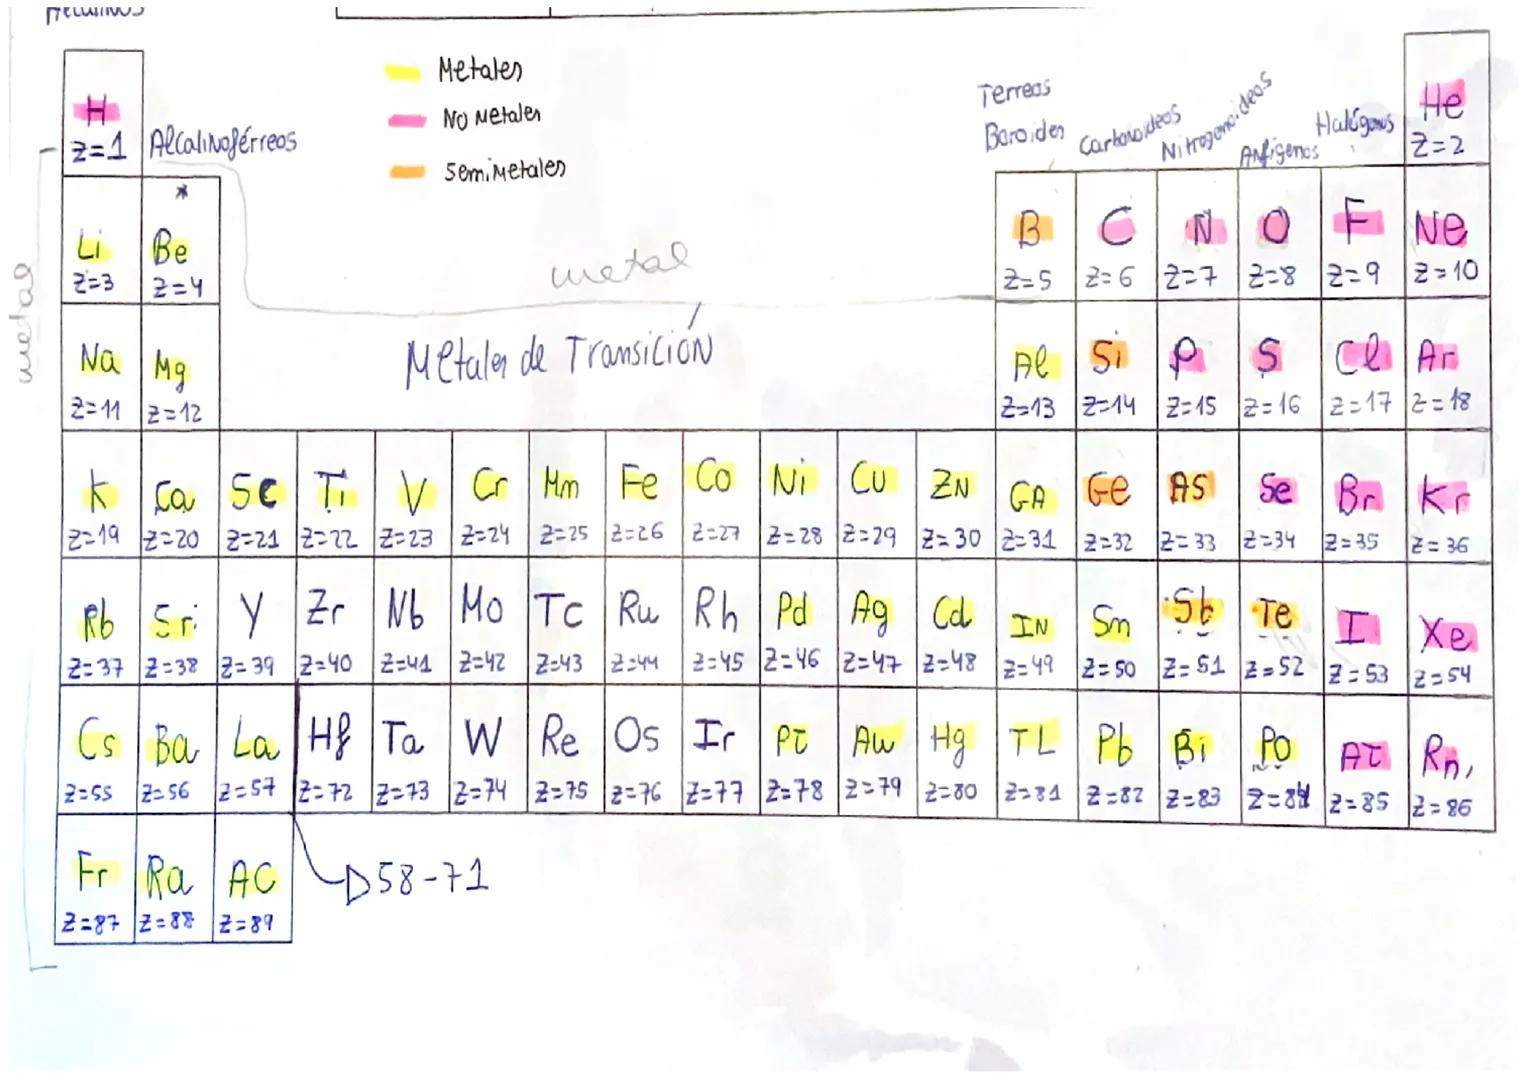 Metales
No Metales
SemiMetales
Terreos
Boroides
Carbonoideos
Nitrogenoideos
Anfigenos
Halógenos
H
Z=1
Alcalinotérreos
He
Z=2
*
Li
Z=3
Be
Z=4
B
Z=5
C
Z=6
N
Z=7
O
Z=8
F
Z=9
Ne
Z=10
metal
metal
Metales de Transición
Na
Z=11
Mg
Z=12
Al
Z=13
Si
Z=14
P
Z=15
S
Z=16
Cl
Z=17
Ar
Z=18
K
Z=19
Ca
Z=20
Sc
Z=21
Ti
Z=22
V
Z=23
Cr
Z=24
Mn
Z=25
Fe
Z=26
Co
Z=27
Ni
Z=28
Cu
Z=29
ZN
Z=30
GA
Z=31
Ge
Z=32
AS
Z=33
Se
Z=34
Br
Z=35
Kr
Z=36
Rb
Z=37
Sr
Z=38
Y
Z=39
Zr
Z=40
Nb
Z=41
Mo
Z=42
Tc
Z=43
Ru
Z=44
Rh
Z=45
Pd
Z=46
Ag
Z=47
Cd
Z=48
IN
Z=49
Sn
Z=50
Sb
Z=51
Te
Z=52
I
Z=53
Xe
Z=54
Cs
Z=55
Ba
Z=56
La
Z=57
Hf
Z=72
Ta
Z=73
W
Z=74
Re
Z=75
Os
Z=76
Ir
Z=77
Pt
Z=78
Au
Z=79
Hg
Z=80
TL
Z=81
Pb
Z=82
Bi
Z=83
PO
Z=84
At
Z=85
Rn
Z=86
Fr
Z=87
Ra
Z=88
AC
Z=89
58-71